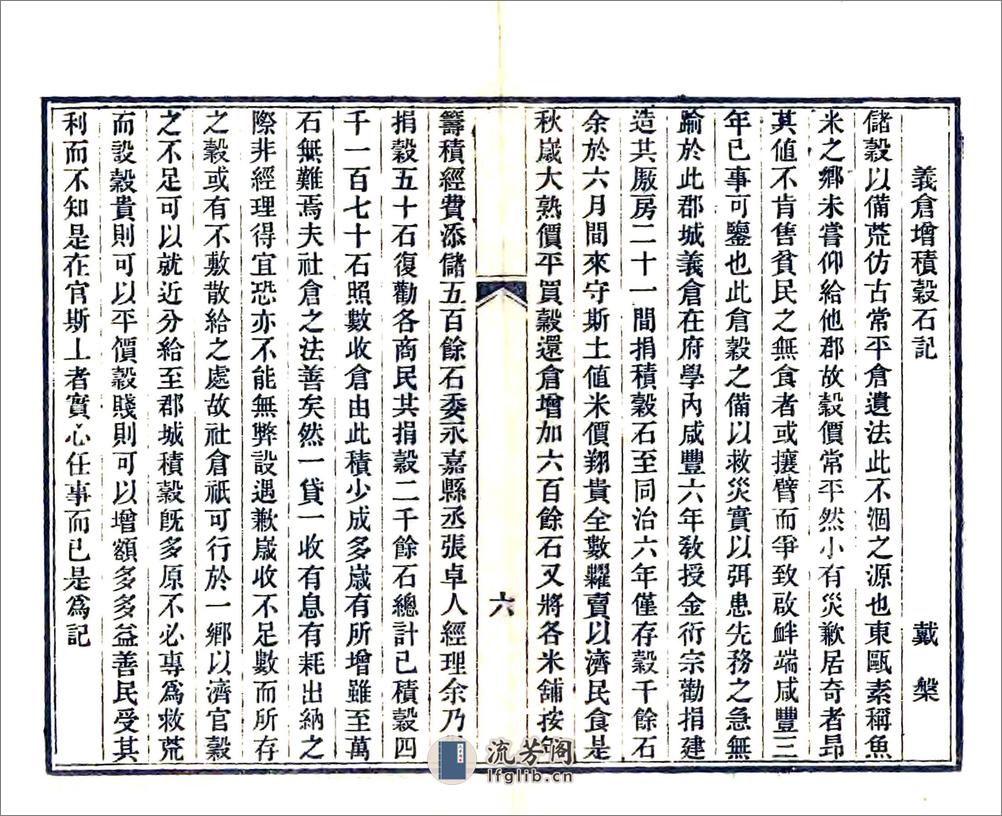 義倉增積穀石記 戴槃
儲穀以備荒仿古常平倉遺法此不涸之源也東甌素稱魚
米之鄉未嘗仰給他郡故穀價常平然小有災歉居奇者昂
其值不肯售貧民之無食者或攘臂而爭致啟衅端咸豐三
年已事可鑒也此倉穀之備以救災實以弭患先務之急無
踰於此郡城義倉在府學內咸豐六年敎授金衍宗勸捐建
造其厫房二十一間捐積穀石至同治六年僅存穀千餘石
余於六月間來守斯土值米價翔貴全數糶賣以濟民食是
秋嵗大熟價平買穀還倉增加六百餘石又將各米舖按年
六
籌積經費添儲五百餘石委永嘉縣丞張卓人經理余乃
捐穀五十石復勸各商民其捐穀二千餘石總計已積穀四
千一百七十石照數收倉由此積少成多嵗有所增雖至萬
石無難焉夫社倉之法善矣然一貸一收有息有耗出納之
際非經理得宜恐亦不能無弊設遇歉嵗收不足數而所存
之穀或有不敷散給之處故社倉祇可行於一鄉以濟官穀
之不足可以就近分給至郡城積穀旣多原不必專爲救荒
而設穀貴則可以平價穀賤則可以增額多多益善民受其
利而不知是在官斯土者實心任事而已是爲記
流芳阁
lfglib.cn